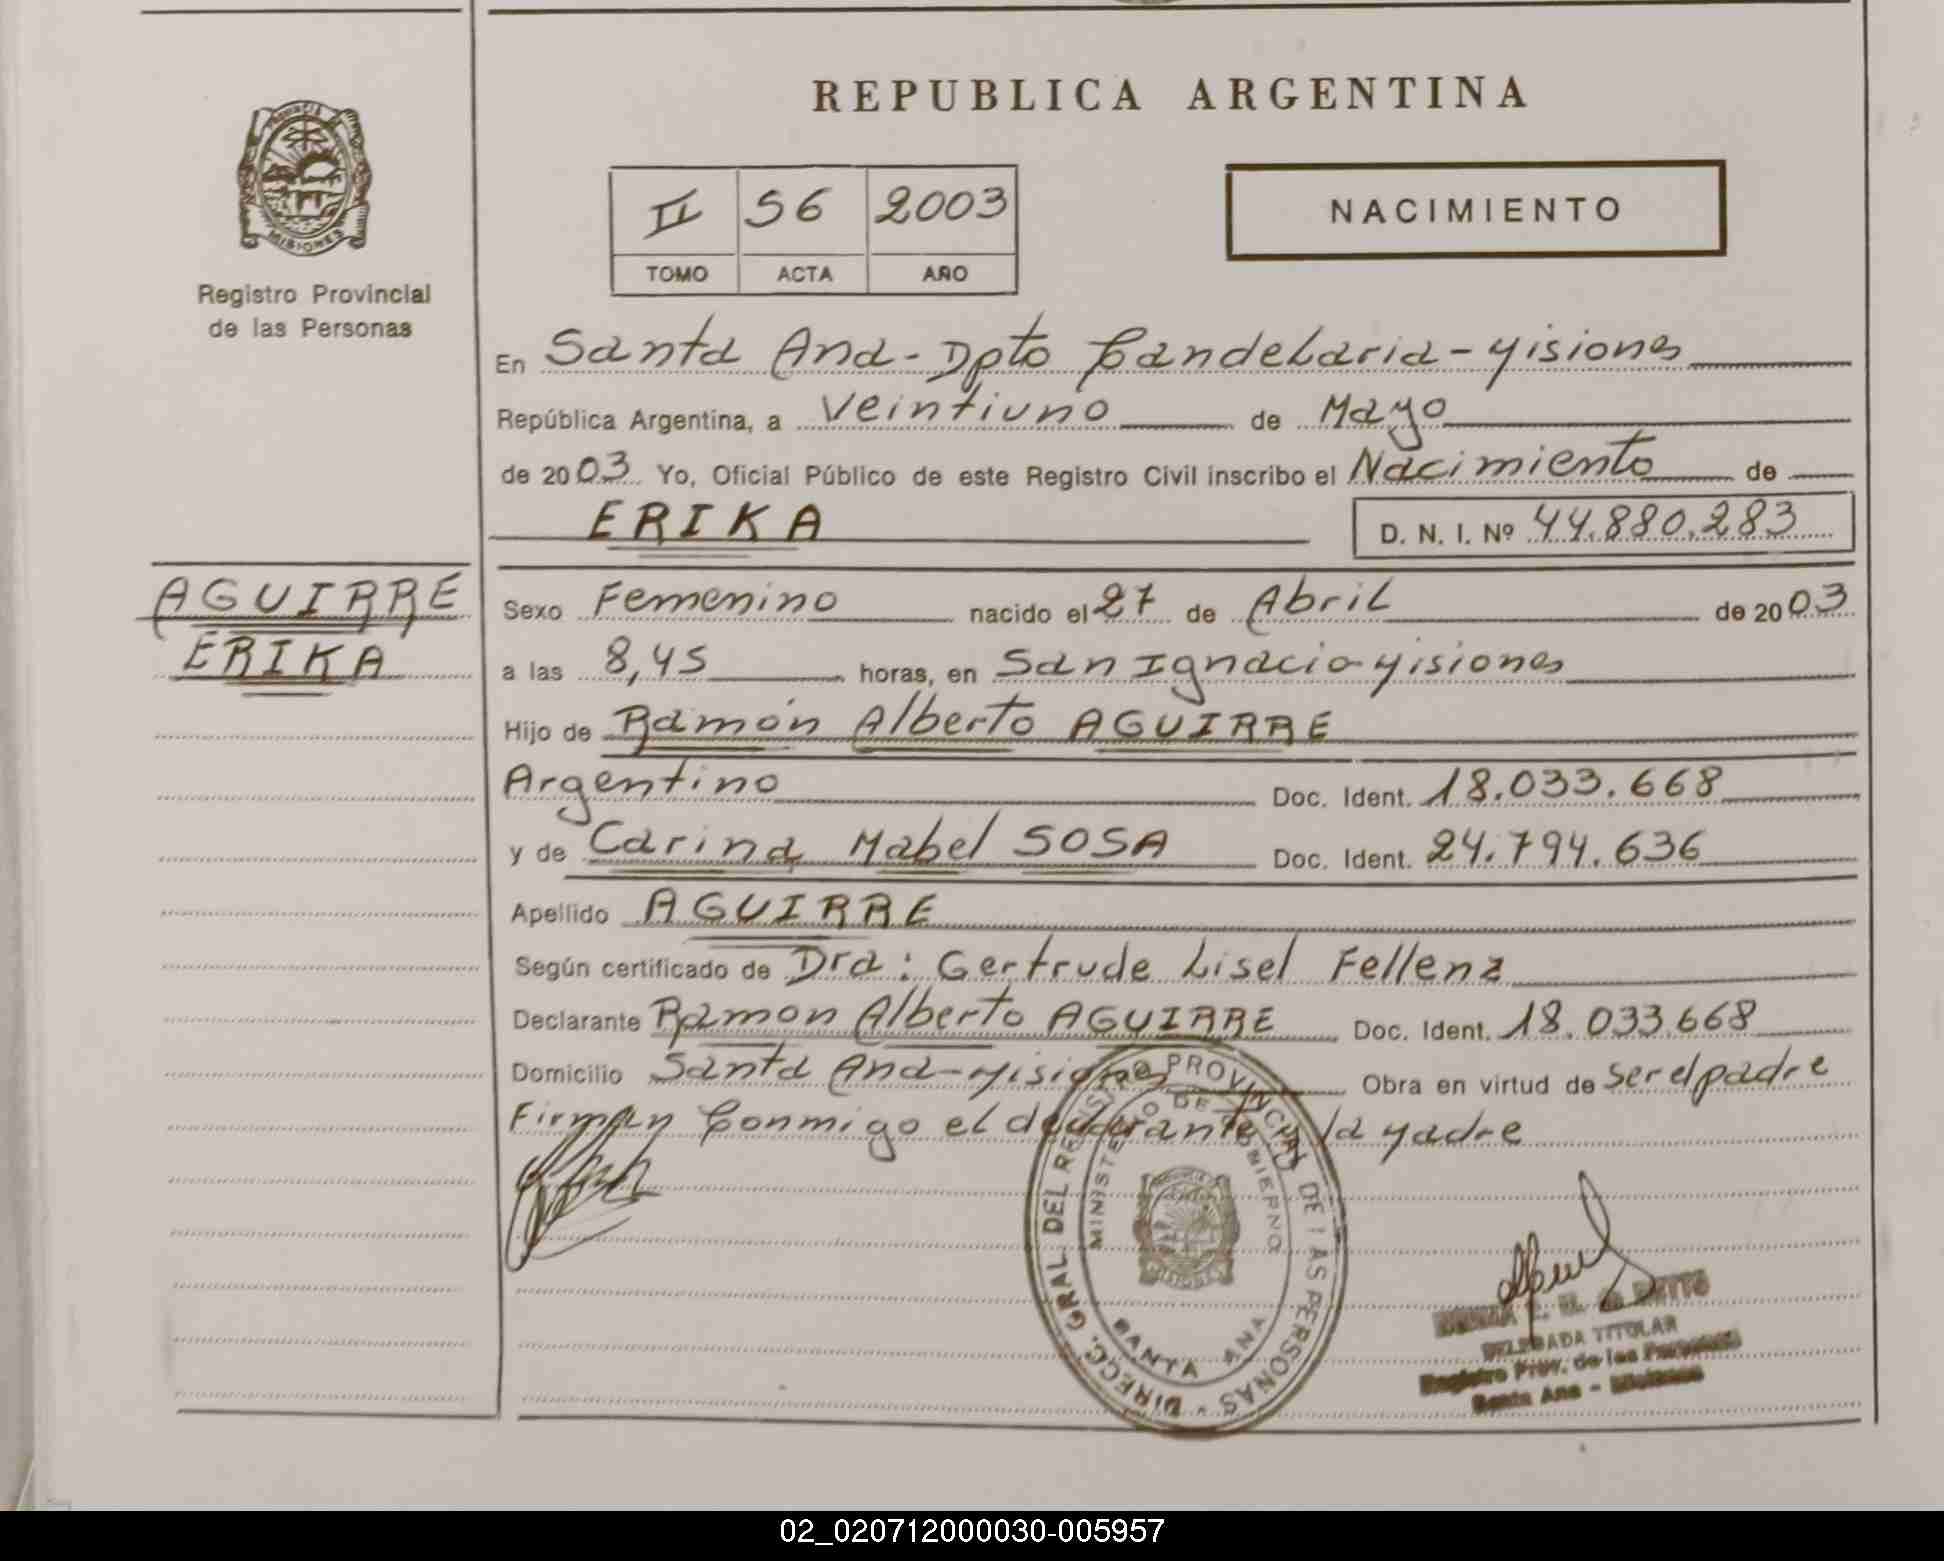 REPUBLICA ARGENTINA
PROVINCIA
MISIONES
Registro Provincial
de las Personas
II 56 2003
TOMO ACTA AÑO
NACIMIENTO
En Santa Ana - Dpto Candelaria - Misiones
República Argentina, a Veintiuno de Mayo
de 2003 Yo, Oficial Público de este Registro Civil inscribo el Nacimiento de
ERIKA D. N. I. Nº 44.880.283
AGUIRRE
ERIKA
Sexo Femenino nacido el 27 de Abril de 2003
a las 8,45 horas, en San Ignacio - Misiones
Hijo de Ramón Alberto AGUIRRE
Argentino Doc. Ident. 18.033.668
y de Carina Mabel SOSA Doc. Ident. 24.794.636
Apellido AGUIRRE
Según certificado de Dra: Gertrude Lisel Fellenz
Declarante Ramon Alberto AGUIRRE Doc. Ident. 18.033.668
Domicilio Santa Ana - Misiones Obra en virtud de ser el padre
Firman Conmigo el declarante y la Madre
DIRECC. GRAL DEL REGISTRO PROVINCIAL DE LAS PERSONAS
MINISTERIO DE GOBIERNO
SANTA ANA
DELEGADA TITULAR
Registro Prov. de las Personas
Santa Ana - Misiones
02_020712000030-005957